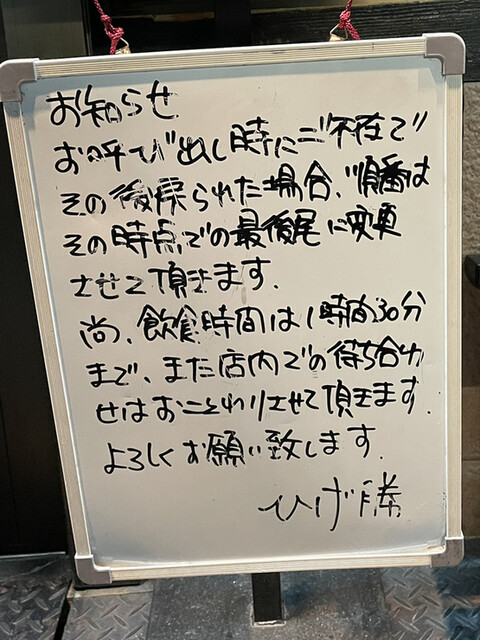 お知らせ
お呼び出し時にご不在で
その後戻られた場合、順番は
その時点での最後尾に変更
させて頂きます.
尚、飲食時間は1時間30分
まで、また店内での待ち合わ
せはおことわりさせて頂きます.
よろしくお願い致します.
ひげ勝